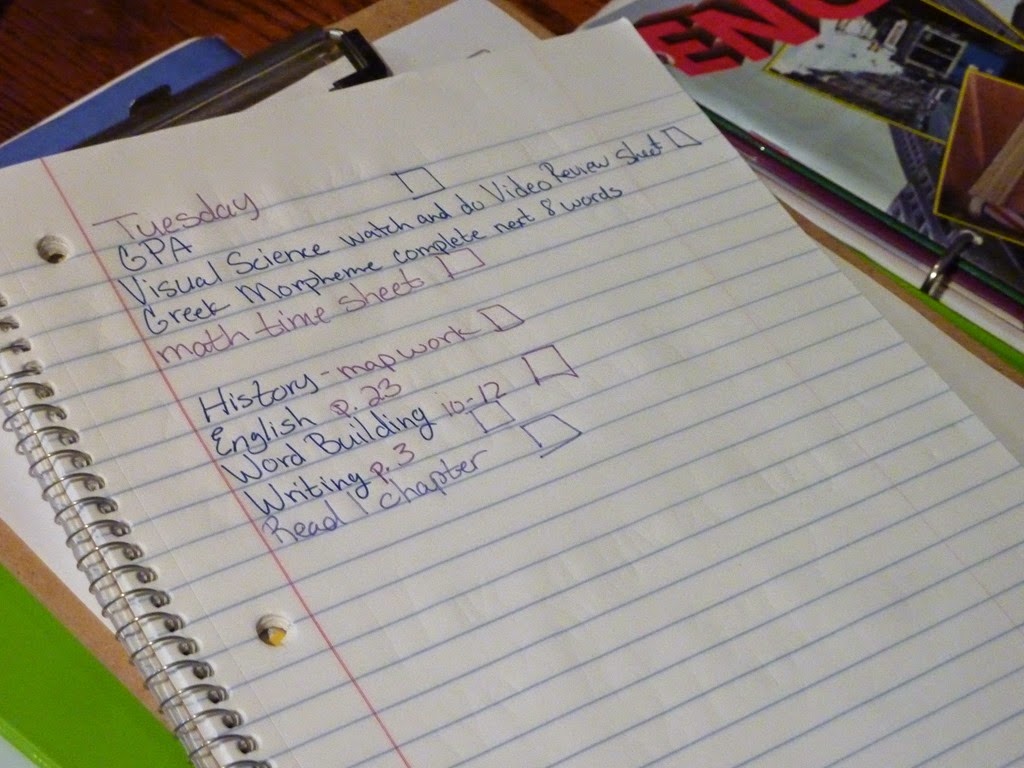 Tuesday
GPA
Visual Science watch and do Video Review sheet
Greek Morpheme complete next 8 words
math time sheet
History - map work
English p. 23
Word Building 10-12
Writing p. 3
Read 1 chapter
ENG